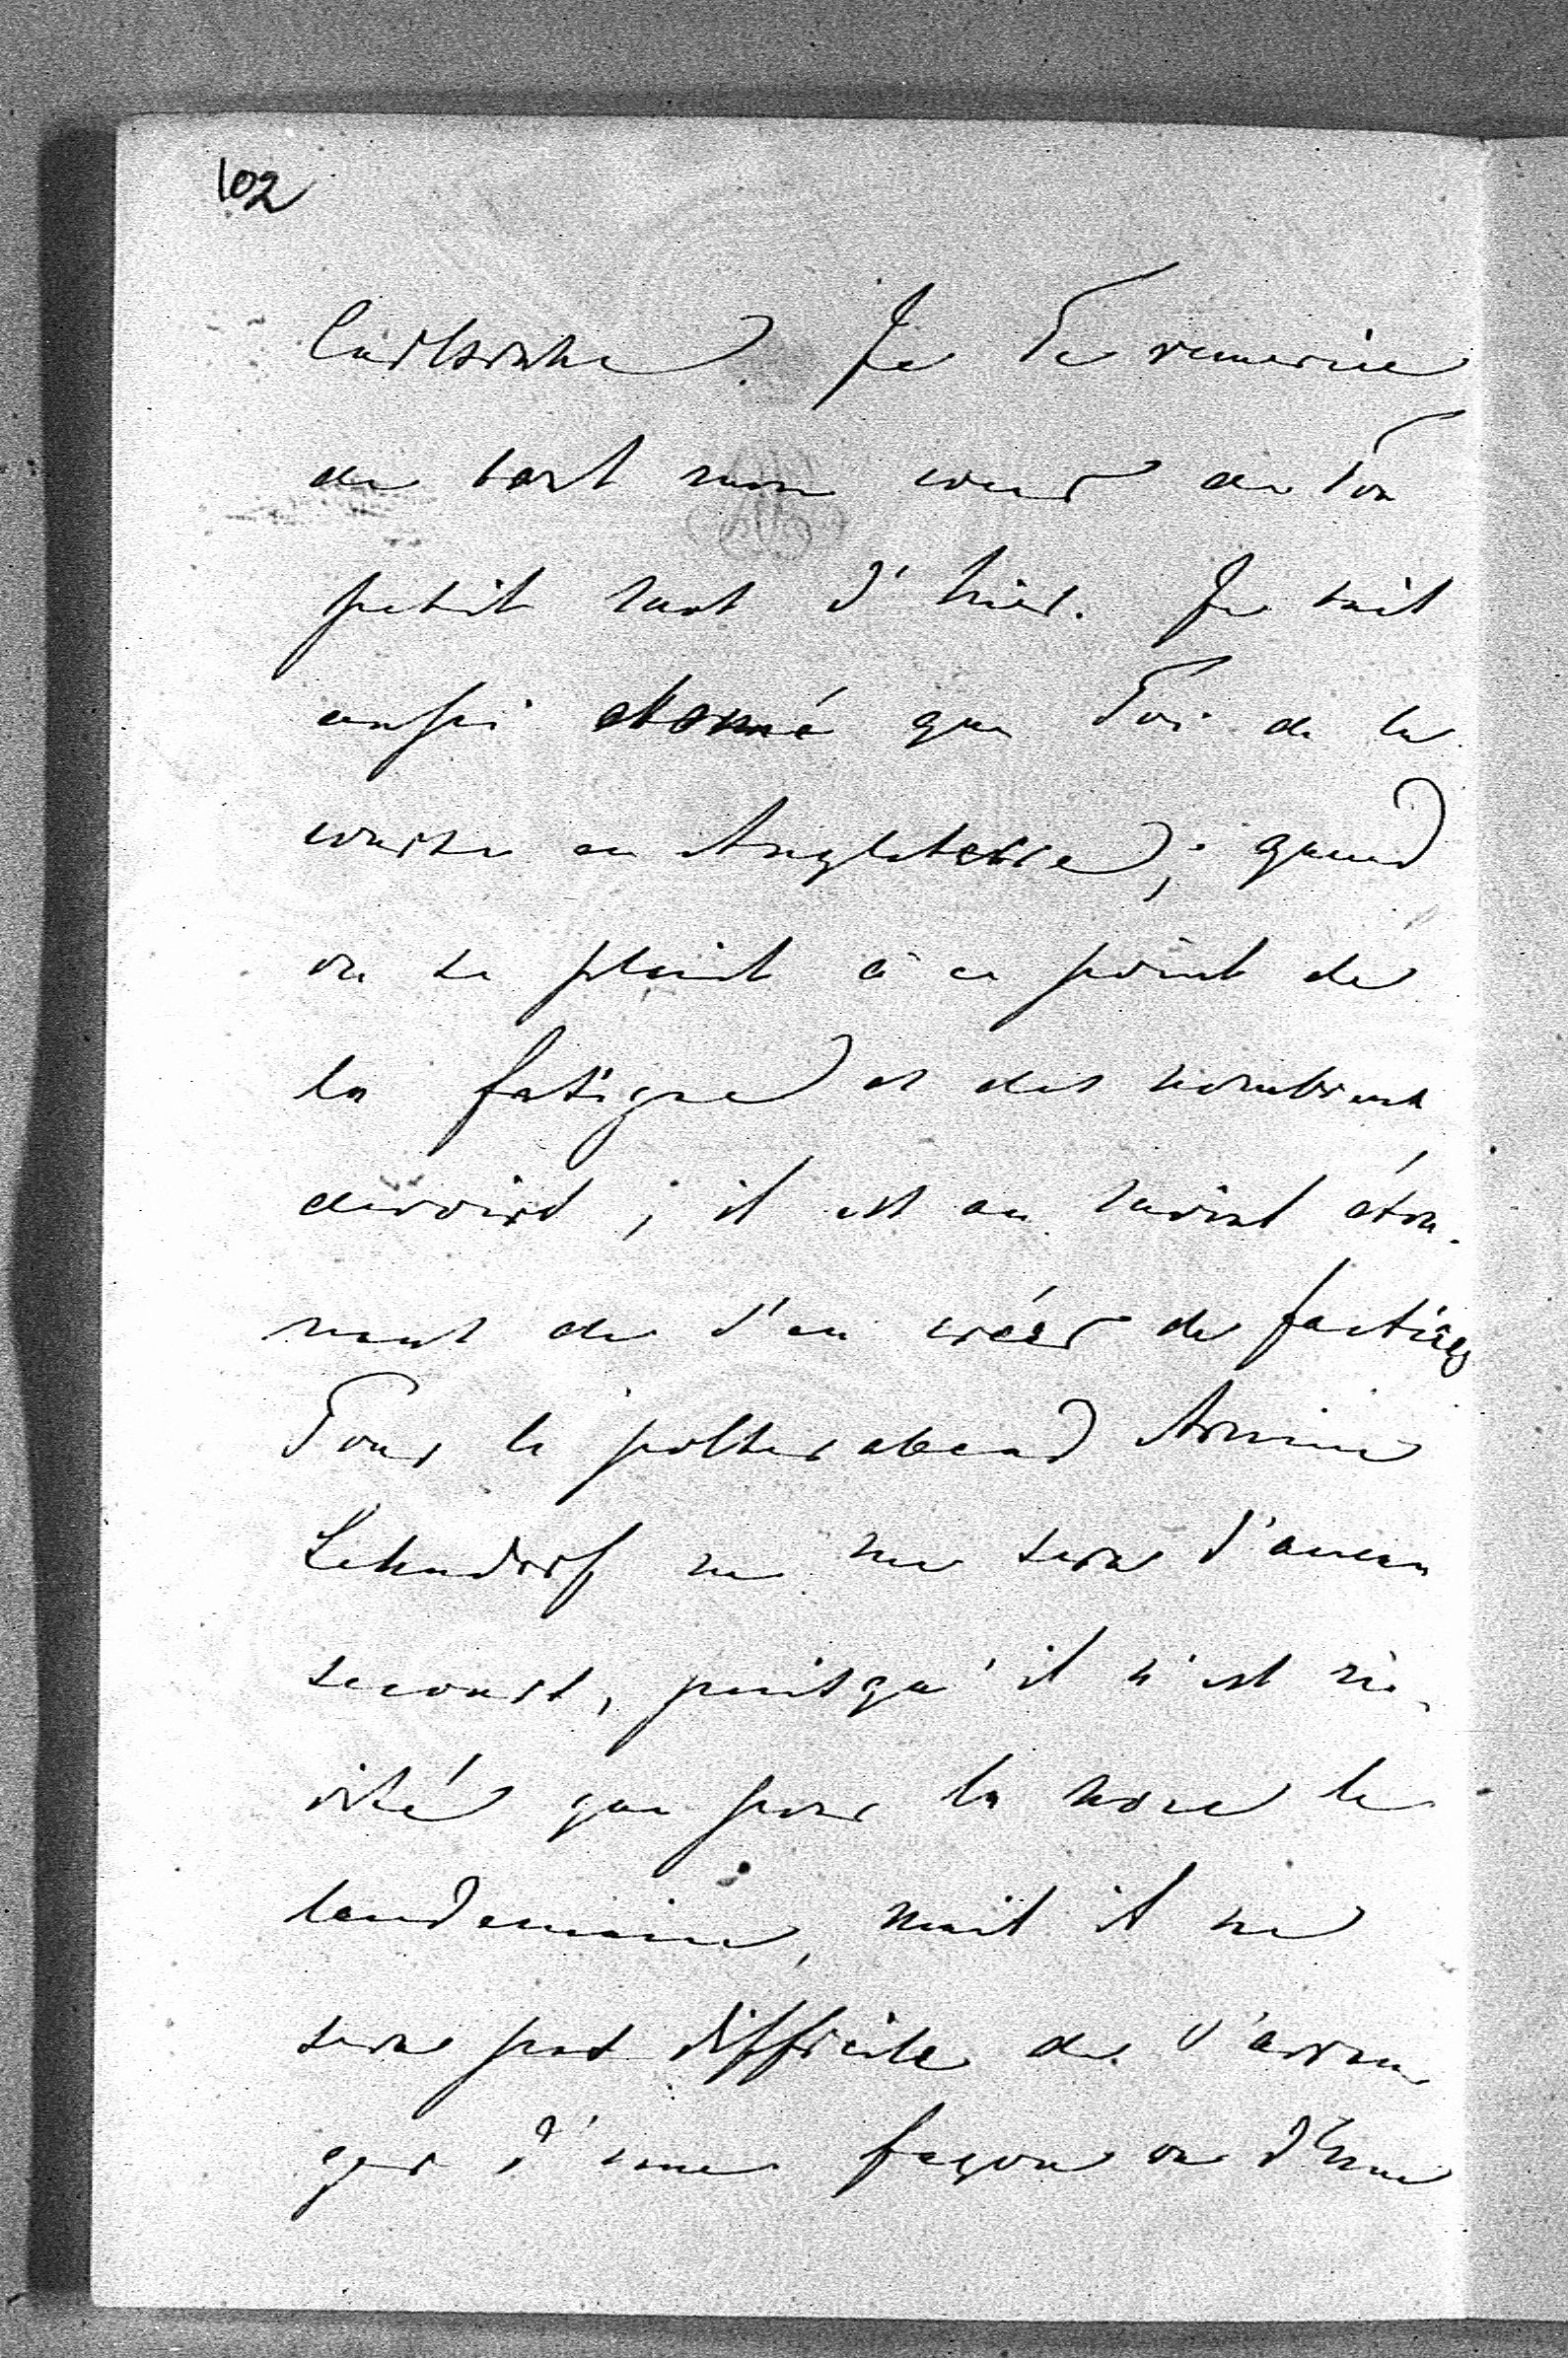 102
Carlsruhe. Je Te remercie
de tout mon coeur de Ton
petit mot d'hier. Je suis
aussi etonné que Toi de la
course en Angleterre; quand
on se plaint à ce point de
la fatigue et des nombreux
devoirs; il est au moins éton-
nant de s'en créer de factices
Pour le polterabend
Lehndorf ne me sera d'aucun
secours, puisqu'il n'est in-
vité que pour la noce le
lendemain, mais il ne
sera pas difficile de s'arran
ger d'une façon ou d'une